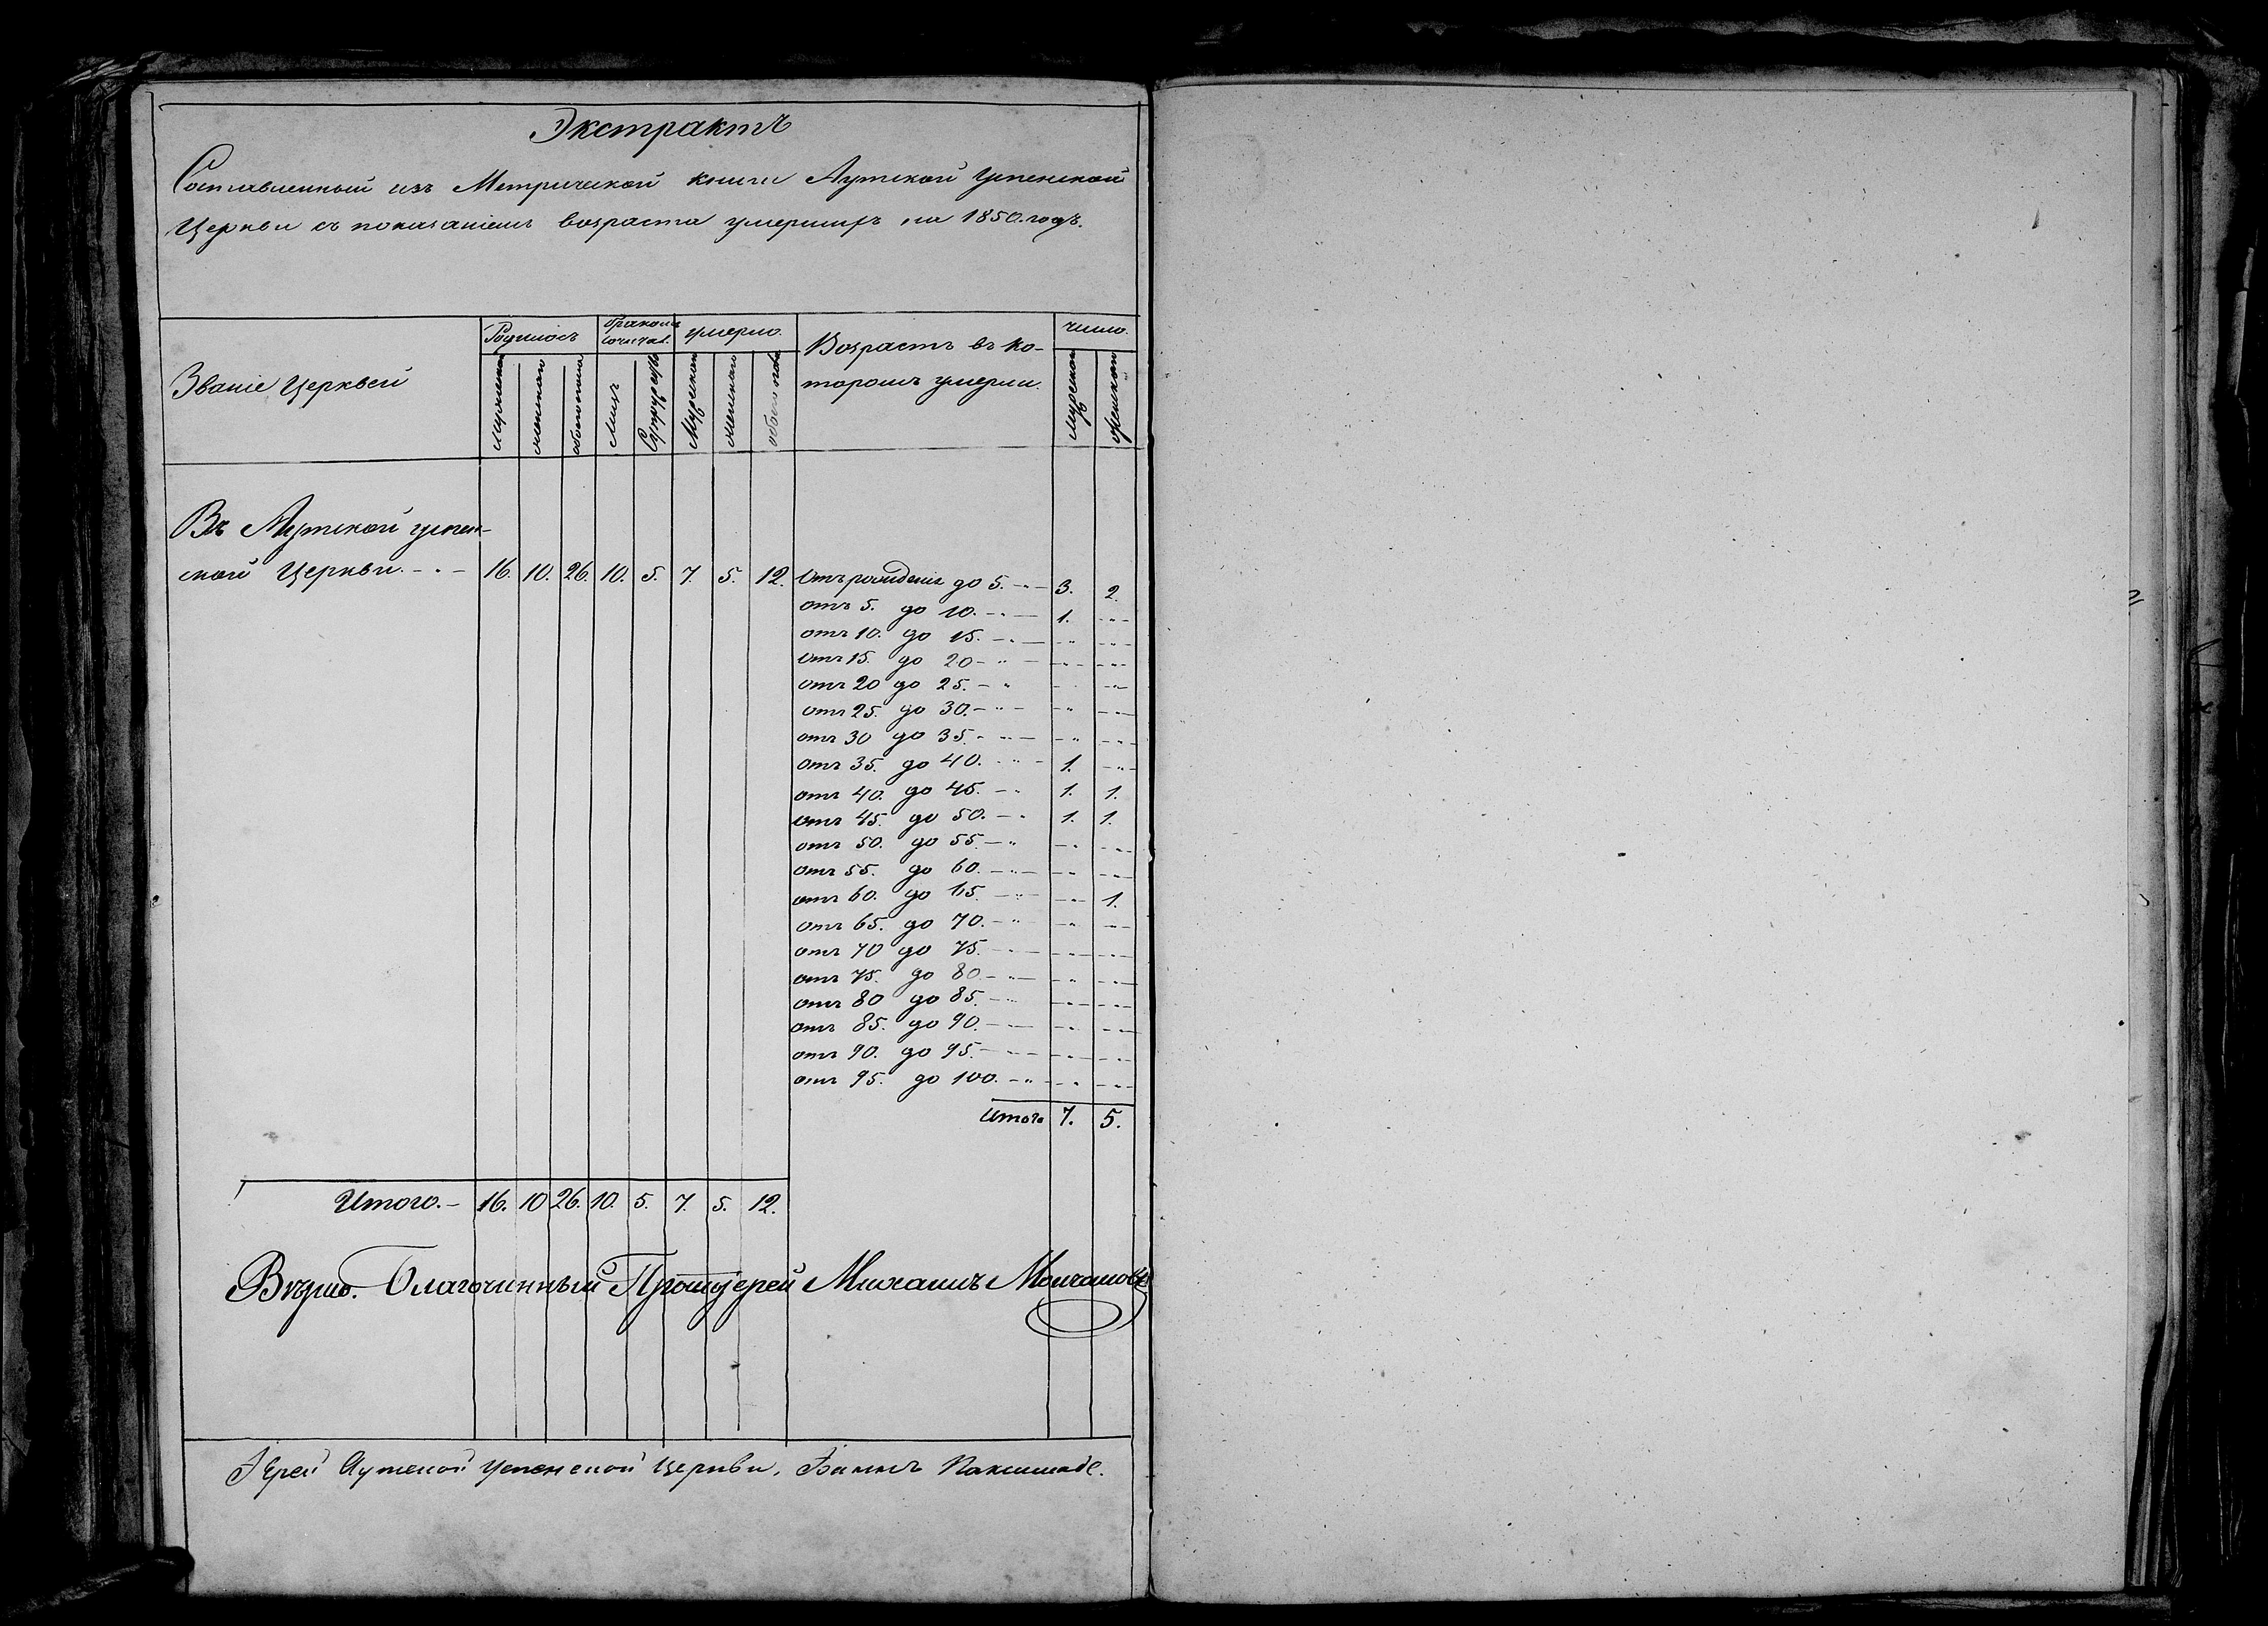 Экстрактъ
Составленный изъ Метрической книги Аутской Успенской
Церкви съ показаніемъ возраста умершихъ, на 1850. годъ.
Званіе Церквей
Родилось
бракомъ сочетал.
умерло.
Возрастъ въ ко-
торомъ умерли.
число.
мужеска
женска
обоего пола
Лицъ
Супружествъ
Мужеска
женска
обоего пола
мужеска
женска
Въ Аутской успен-
ской Церкви. - . - 16. 10. 26. 10. 5. 7. 5. 12.
Отъ рожденія до 5. - „ - 3. 2.
отъ 5. до 10. - „ - 1. - „ -
отъ 10. до 15. - „ - - „ - - „ -
отъ 15. до 20 - „ - - „ - - „ -
отъ 20 до 25. - „ - „ - - „ -
отъ 25. до 30. - „ - - „ - „ -
отъ 30 до 35. - „ - - „ - „ -
отъ 35. до 40. - „ - 1. - „ -
отъ 40. до 45. - „ 1. 1.
отъ 45. до 50. - „ 1. 1.
отъ 50. до 55. - „ - „ - „ -
отъ 55. до 60. - „ - - „ - - „ -
отъ 60. до 65. - „ - - „ - 1.
отъ 65. до 70. - „ - „ - „ -
отъ 70 до 75. - „ - - „ - - „ -
отъ 75. до 80 - „ - - „ - „ -
отъ 80 до 85. - „ - „ - - „ -
отъ 85. до 90. - „ - - „ - „ -
отъ 90. до 95. - „ - - „ - - „ -
отъ 95. до 100. - „ - - „ - „ -
Итого 7. 5.
Итого. - 16. 10 26. 10. 5. 7. 5. 12.
Благочинный Протоіерей Михаилъ
Іерей Аутской Успенской Церкви, Іоаннъ